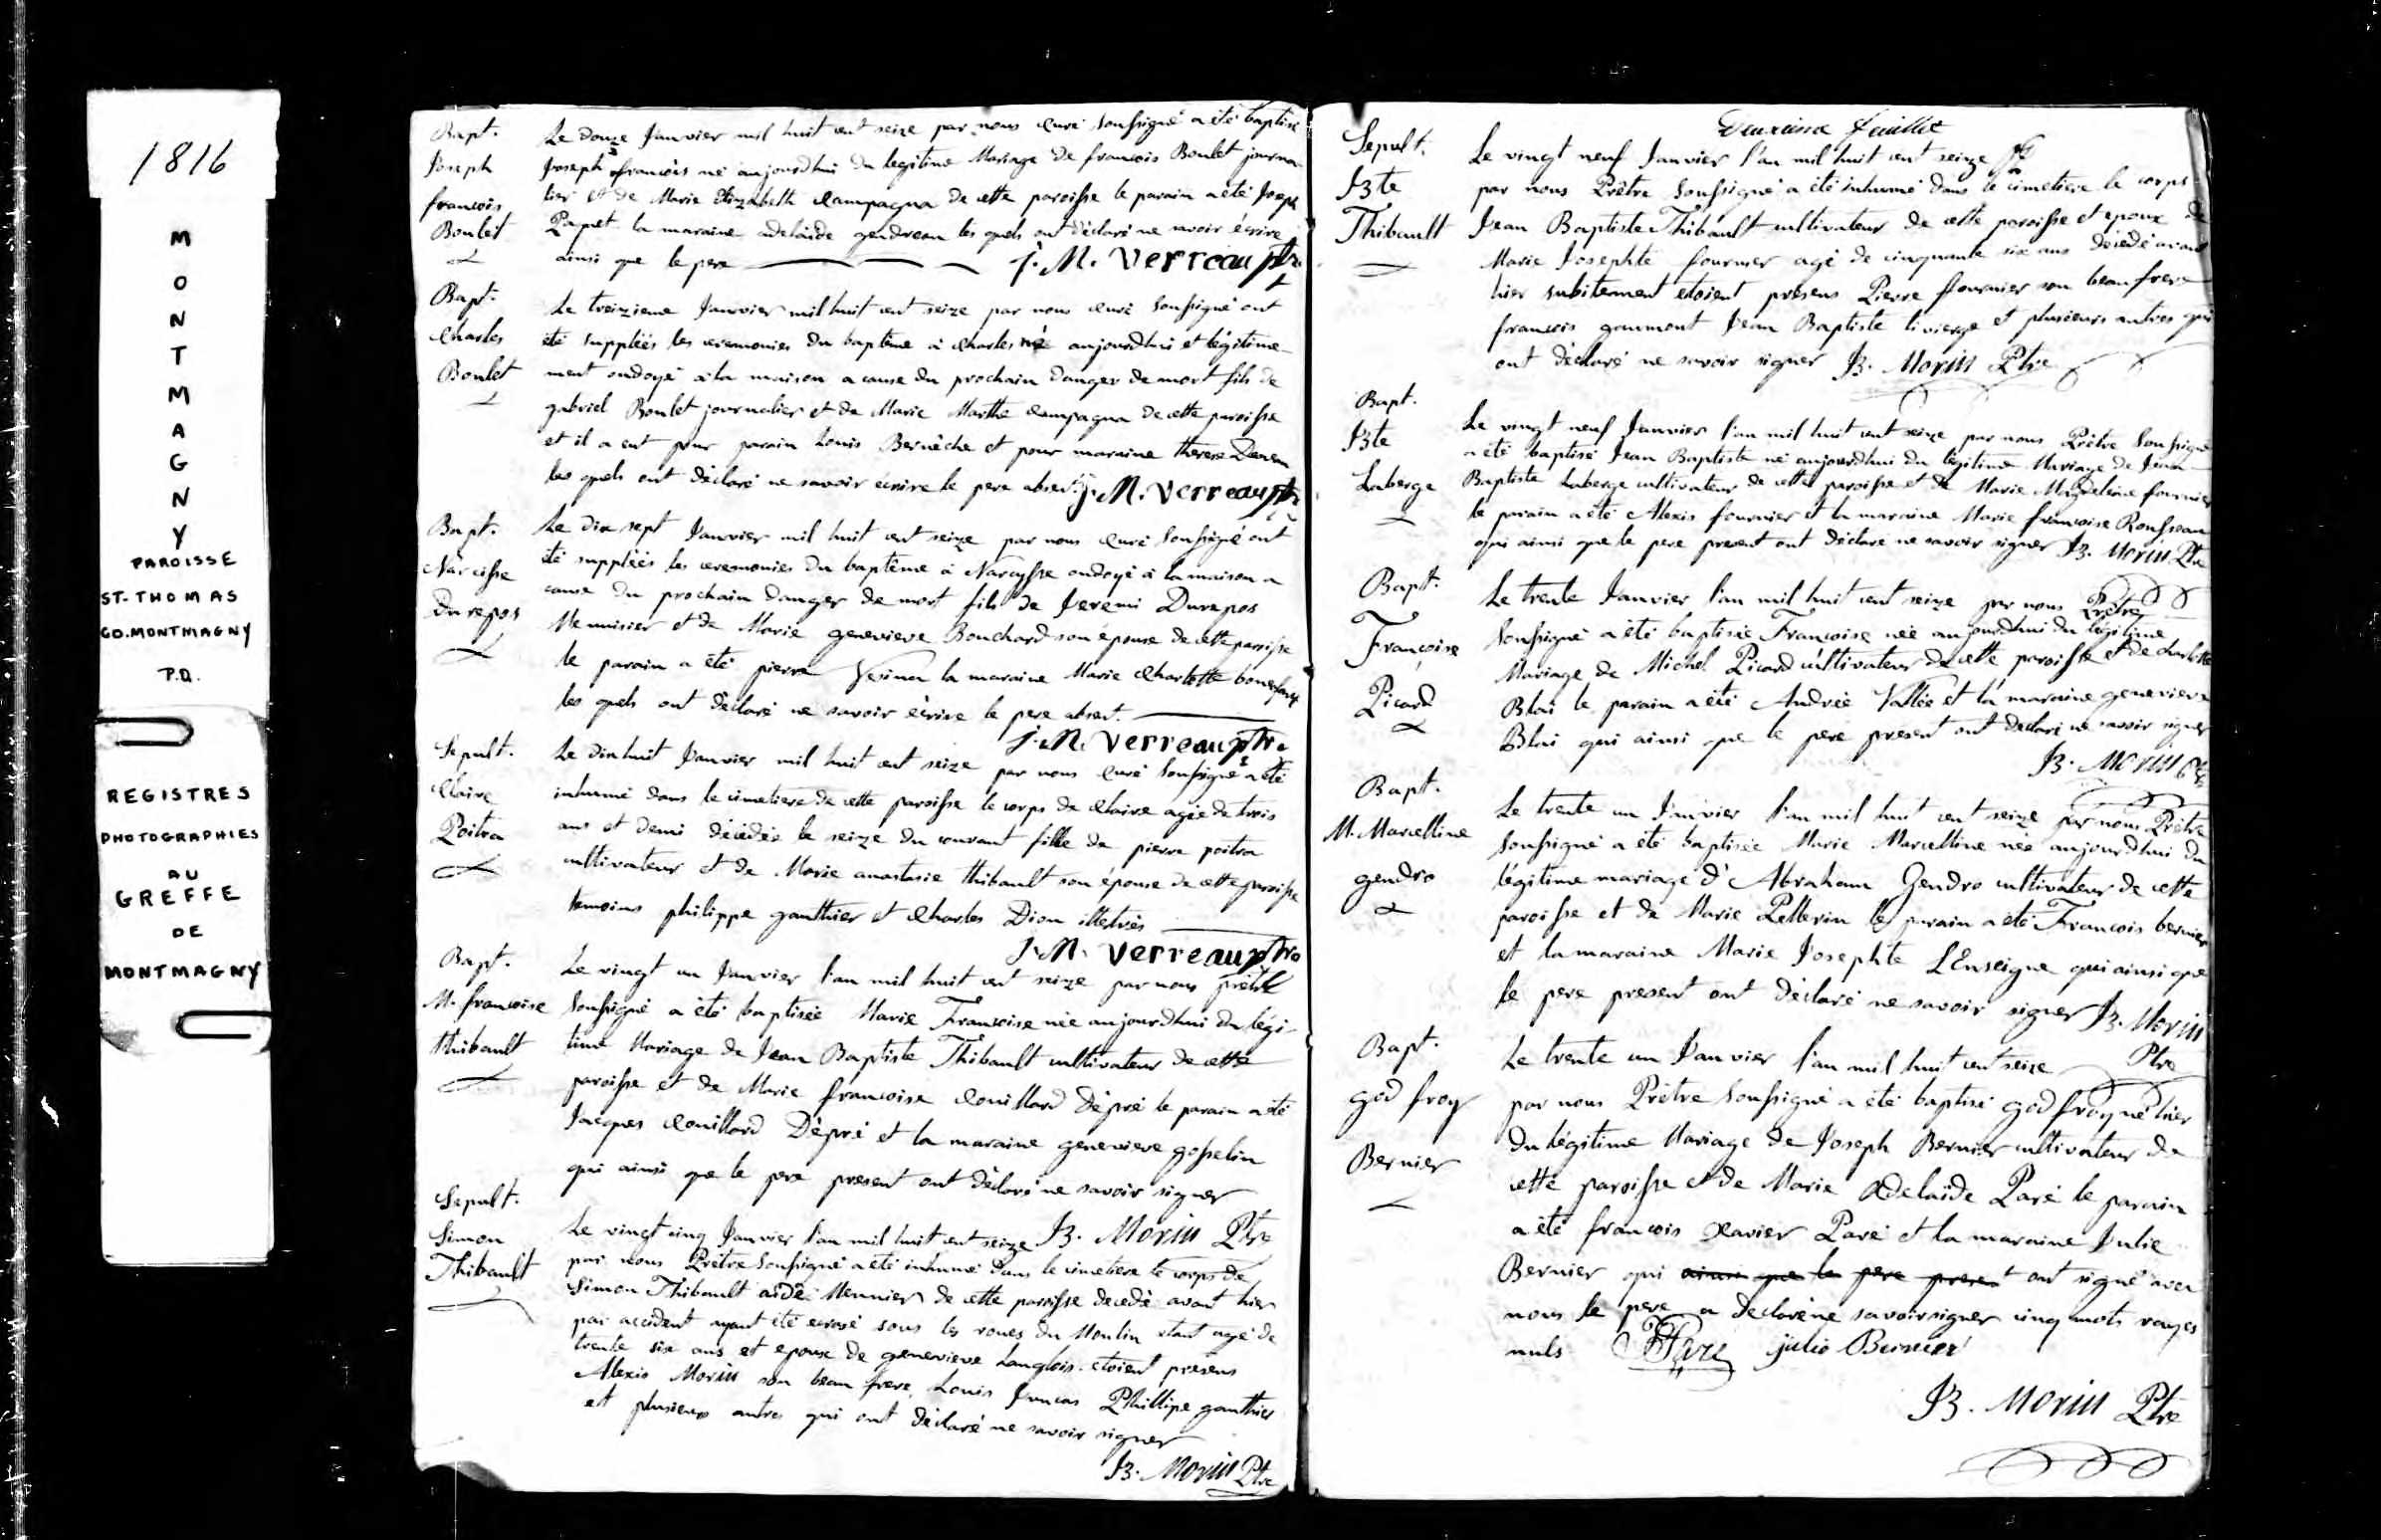 1816
MONTMAGNY
PAROISSE
ST. THOMAS
CO. MONTMAGNY
P.Q.
REGISTRES
PHOTOGRAPHIES
AU
GREFFE
DE
MONTMAGNY
Bapt.
Joseph
françois
Boulet
Le douze Janvier mil huit cent seize par nous Curé Soussigné a été baptisé
Joseph françois né aujourdhui du legitime Mariage de françois Boulet journa-
lier et de Marie Elizabeth Campagna de cette paroisse le parain a été Joseph
Paquet la maraine adelaide gendreau les quels ont déclaré ne savoir écrire
ainsi que le pere J. M. Verreau ptre
Bapt.
Charles
Boulet
Le treizieme Janvier mil huit cent seize par nous Curé Soussigné ont
été suppléés les ceremonies du baptême à Charles né aujourdhui et légitime-
ment ondoyé à la maison a cause du prochain danger de mort fils de
gabriel Boulet journalier et de Marie Marthe Campagna de cette paroisse
et il a eut pour parain Louis Bernèche et pour maraine therese
les quels ont déclaré ne savoir écrire le pere absent. J. M. Verreau ptre
Bapt.
Narcisse
Durepos
Le dix sept Janvier mil huit cent seize par nous Curé Soussigné ont
été suppléés les ceremonies du baptême à Narcysse ondoyé à la maison a
cause du prochain danger de mort fils de Jeremi Durepos
Menuisier et de Marie genevieve Bouchard son épouse de cette paroisse
le parain a été pierre Vesina la maraine Marie Charlotte bonnefans
les quels ont déclaré ne savoir écrire le pere absent.
J. M. Verreau ptre
Sepult.
Claire
Poitra
Le dixhuit Janvier mil huit cent seize par nous Curé Soussigné a été
inhumé dans le cimetiere de cette paroisse le corps de Claire agée de trois
ans et demi décédée le seize du courant fille de pierre poitra
cultivateur et de Marie anastasie thibault son épouse de cette paroisse
temoins philippe gauthier et Charles Dion illetrés
J. M. Verreau ptre
Bapt.
M. françoise
thibault
Le vingt un Janvier l'an mil huit cent seize par nous prêtre
Soussigné a été baptisée Marie Françoise née aujourdhui du légi-
time Mariage de Jean Baptiste Thibault cultivateur de cette
paroisse et de Marie françoise Couillard Dépré le parain a été
Jacques Couillard Dépré et la maraine genevieve gosselin
qui ainsi que le pere present ont déclaré ne savoir signer
Sepult.
Simon
Thibault
Le vingt cinq Janvier l'an mil huit cent seize B. Morin Ptre
par nous Prêtre Soussigné a été inhumé dans le cimetiere le corps de
Simon Thibault aide Meunier de cette paroisse decedé avant hier
par accident ayant été ecrasé sous les roues du Moulin etant agé de
trente six ans et epoux de genevieve Langlois. etoient présens
Alexis Morin son beau frere, Louis Juneas Phillipe gauthier
et plusieurs autres qui ont déclaré ne savoir signer
B. Morin Ptre
Deuxieme feuille
Sepult.
Bte
Thibault
Le vingt neuf Janvier l'an mil huit cent seize
par nous Prêtre Soussigné a été inhumé dans le cimetiere le corps
Jean Baptiste Thibault cultivateur de cette paroisse et epoux de
Marie Josephte fournier agé de cinquante six ans décedé avant
hier subitement etoient présens Pierre fournier son beau frere
françois gaumont Jean Baptiste livierge et plusieurs autres qui
ont déclaré ne savoir signer B. Morin Ptre
Bapt.
Bte
Laberge
Le vingt neuf Janvier l'an mil huit cent seize par nous Prêtre Soussigné
a été baptisé Jean Baptiste né aujourdhui du légitime Mariage de Jean
Baptiste Laberge cultivateur de cette paroisse et de Marie Magdeleine fournier
le parain a été Alexis fournier et la maraine Marie françoise Rousseau
qui ainsi que le pere present ont déclaré ne savoir signer B. Morin Ptre
Bapt.
Françoise
Picard
Le trente Janvier l'an mil huit cent seize par nous Prêtre
Soussigné a été baptisée Françoise née aujourdhui du légitime
Mariage de Michel Picard cultivateur de cette paroisse et de charlotte
Blai le parain a été Andrée Vallée et la maraine genevieve
Blai qui ainsi que le pere present ont déclaré ne savoir signer
B. Morin Ptre
Bapt.
M. Marcelline
gendro
Le trente un Janvier l'an mil huit cent seize par nous Prêtre
Soussigné a été baptisée Marie Marcelline née aujourdhui du
légitime mariage d'Abraham Gendro cultivateur de cette
paroisse et de Marie Pellerin le parain a été François bernier
et la maraine Marie Josephte L'Enseigne qui ainsi que
le pere present ont déclaré ne savoir signer B. Morin
Ptre
Bapt.
god froy
Bernier
Le trente un Janvier l'an mil huit cent seize
par nous Prêtre Soussigné a été baptisé god froy né hier
du légitime Mariage de Joseph Bernier cultivateur de
cette paroisse et de Marie Adelaïde Paré le parain
a été françois Xavier Paré et la maraine Julie
Bernier qui ainsi que le pere present ont signé avec
nous le pere a déclaré ne savoir signer cinq mots rayés
nuls F Paré julie Bernier
B. Morin Ptre